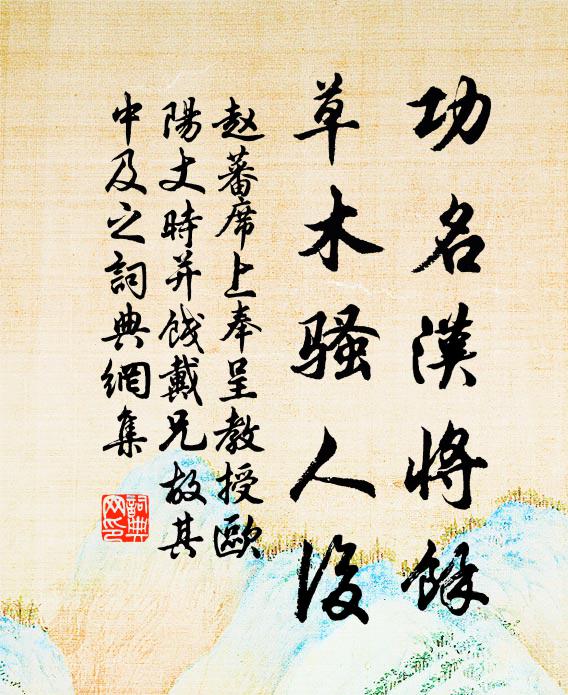 功名漢將餘
草木騷人後
赵蕃席上奉呈教授歐
陽丈時并餞戴兄故其
中及之詞典網集
詞典網印